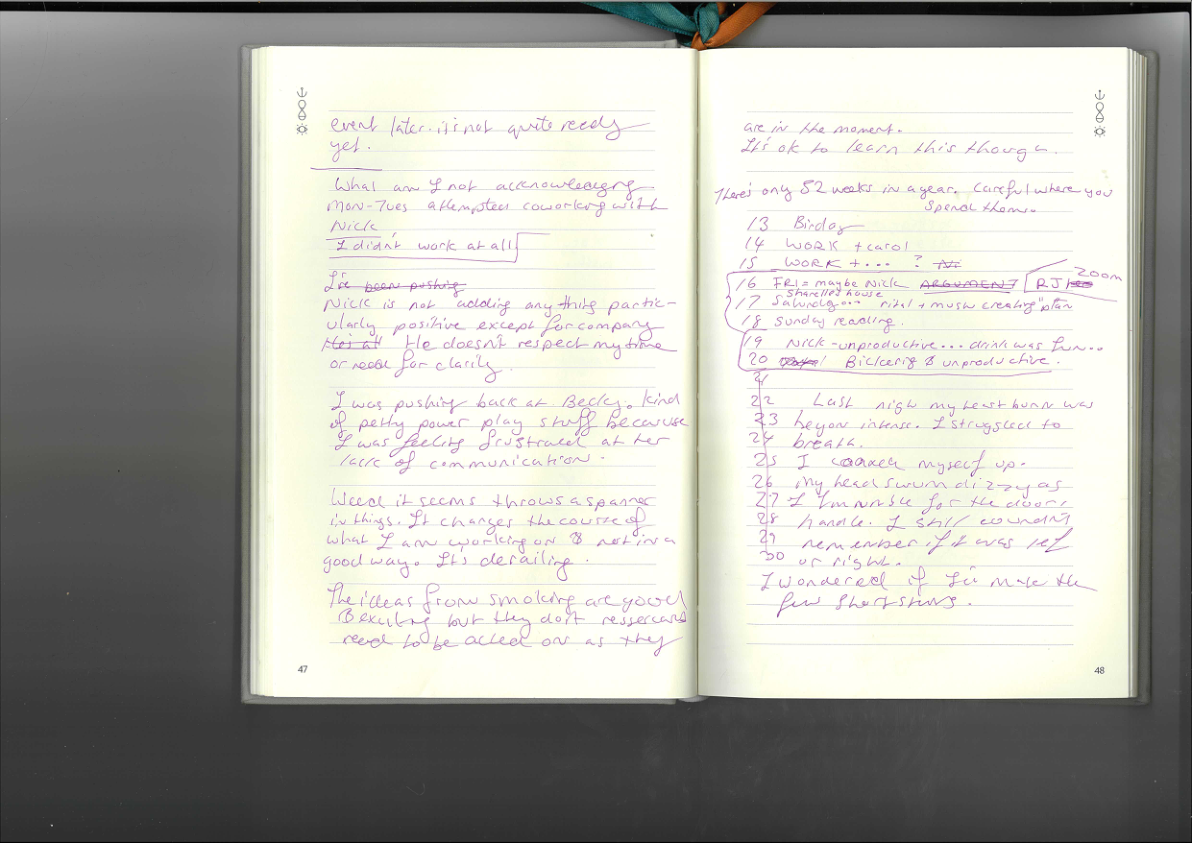 event later. it's not quite ready
yet.
What am I not acknowledging
Mon-Tues attempted coworking with
Nick
I didn't work at all
I've been pushing
Nick is not adding anything partic-
ularly positive except for company
He's at He doesn't respect my time
or need for clarity.
I was pushing back at Becky. kind
of petty power play stuff because
I was feeling frustrated at her
lack of communication.
Weed it seems throws a spanner
in things. It changes the course of
what I am working on & not in a
good way. It's derailing.
The ideas from smoking are good
& exciting but they don't
need to be acted on as they
47
are in the moment.
It's ok to learn this though.
There's only 52 weeks in a year. Careful where you
spend them.
13 Birday
14 WORK + carol
15 WORK + ... ?
16 FRI = maybe Nick ARGUMENT RJ zoom
Sharelle's house
17 Saturday... + music creating "plan
18 Sunday reading.
19 Nick - unproductive... drink was fun..
20 Bickering & unproductive.
21
22 Last nigh my heart burn was
23 beyon intense. I struggled to
24 breath.
25 I myself up.
26 my head swum dizzy as
27 I for the doors
28 handle. I still couldn't
29 remember if it was lef
30 or right.
I wondered if I'd make the
few short
48